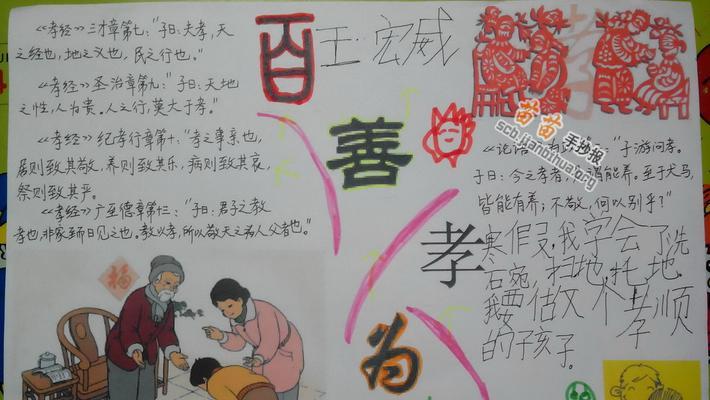 《孝经》三才章第七：“子曰：夫孝，天
之经也，地之义也，民之行也。”
《孝经》圣治章第九：“子曰：天地
之性，人为贵。人之行，莫大于孝。”
《孝经》纪孝行章第十：“孝之事亲也，
居则致其敬，养则致其乐，病则致其哀，
祭则致其严。
《孝经》广至德章第十三：“子曰：君子之教
孝也，非家至而日见之也。教以孝，所以敬天之为人父者也。”
百
善
孝
为
王宏威
孝
苗苗手抄报
scb.jianzixua.org
《论语》：“子游问孝。
子曰：今之孝者，谓能养。至于犬马，
皆能有养；不敬，何以别乎？”
寒假,我学会了洗
石宛,扫地,托地,
我要做个孝顺
的子孩子.
福